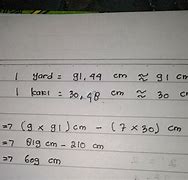 1 yard = 91,44 cm ≈ 91 cm
1 kaki = 30,48 cm ≈ 30 cm
=> (9 x 91) cm - (7 x 30) cm
=> 819 cm - 210 cm
=> 609 cm